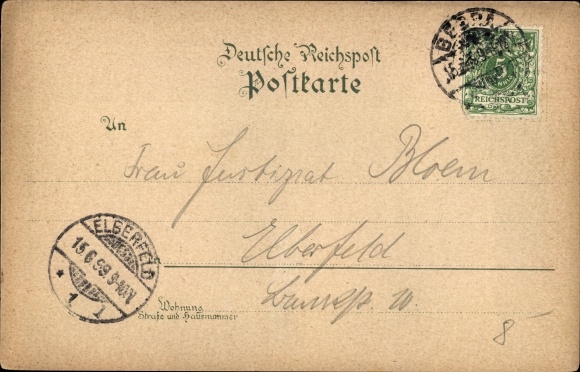 Deutsche Reichspost
Postkarte
5
REICHSPOST
An
Frau Justizrat Bloem
Elberfeld
ELBERFELD
15.6.99.9-10V
* 1 1
10
Wohnung
Straße und Hausnummer
8